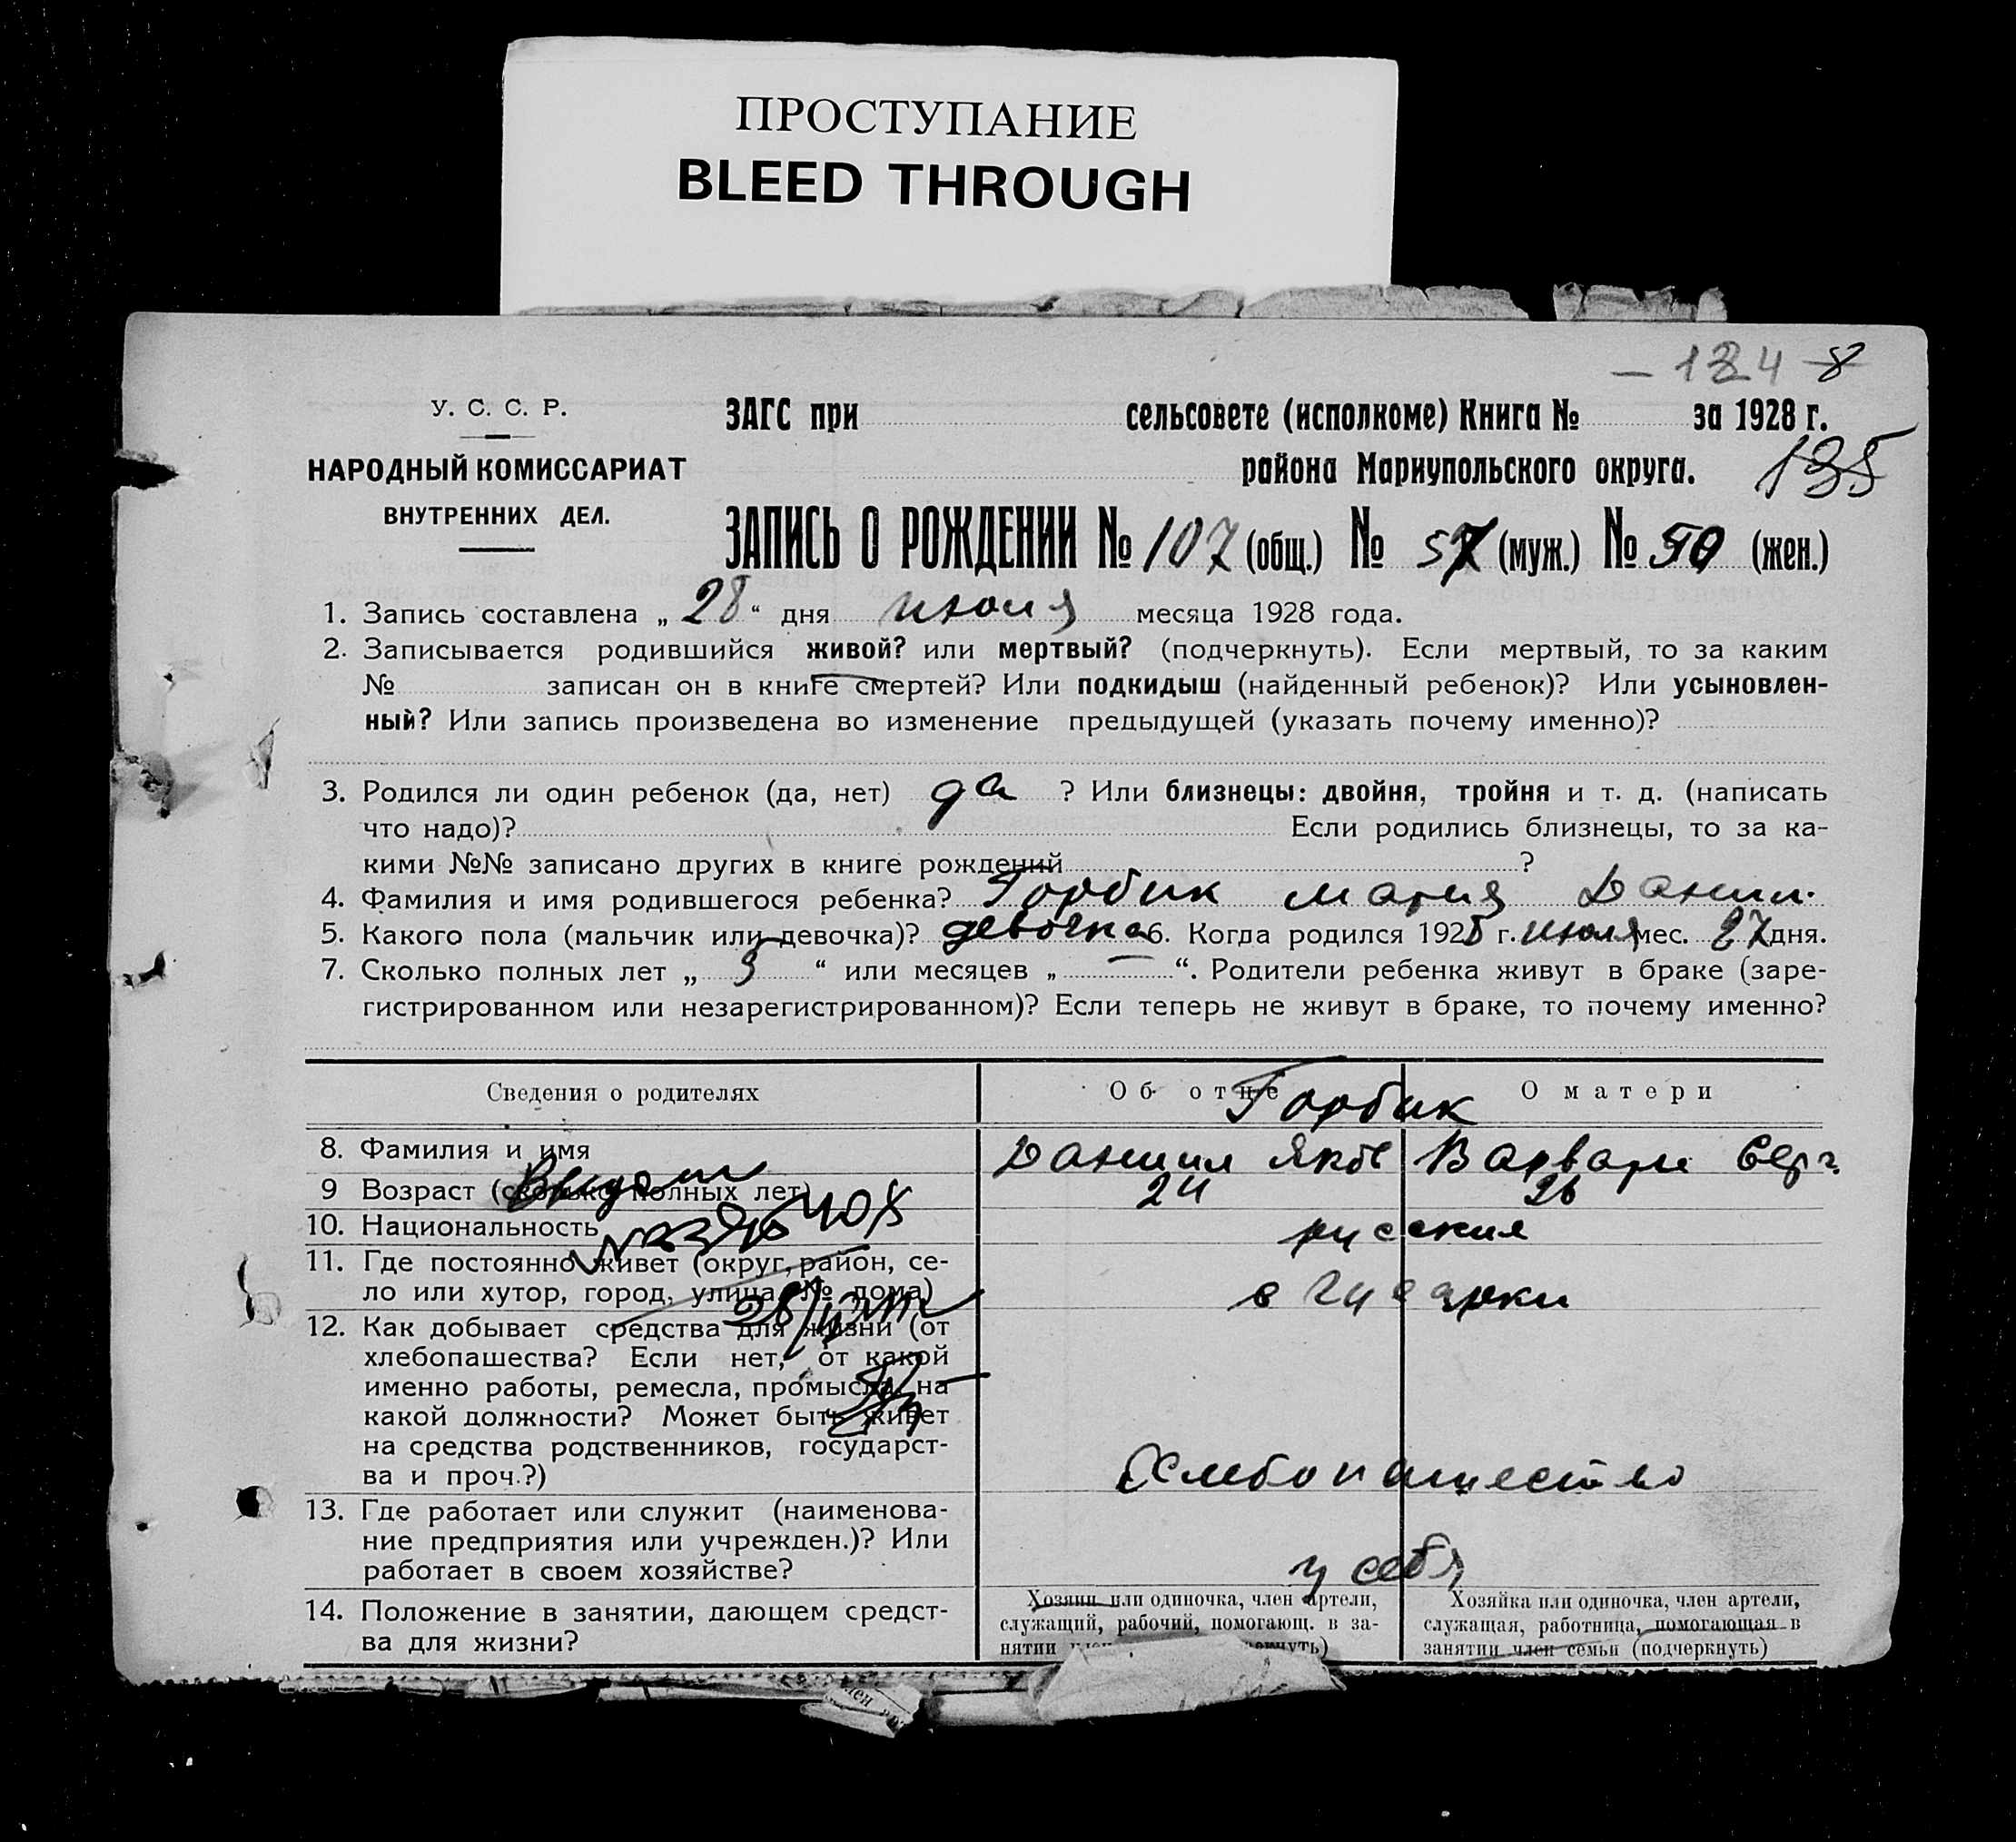 ПРОСТУПАНИЕ
BLEED THROUGH
— 124 8
У. С. С. Р.
ЗАГС при сельсовете (исполкоме) Книга № за 1928 г.
НАРОДНЫЙ КОМИССАРИАТ
района Мариупольского округа.
135
ВНУТРЕННИХ ДЕЛ.
ЗАПИСЬ О РОЖДЕНИИ № 107 (общ.) № 57 (муж.) № 50 (жен.)
1. Запись составлена „ 28 “ дня июля месяца 1928 года.
2. Записывается родившийся живой? или мертвый? (подчеркнуть). Если мертвый, то за каким
№ записан он в книге смертей? Или подкидыш (найденный ребенок)? Или усыновлен-
ный? Или запись произведена во изменение предыдущей (указать почему именно)?
3. Родился ли один ребенок (да, нет) да ? Или близнецы: двойня, тройня и т. д. (написать
что надо)? Если родились близнецы, то за ка-
кими №№ записано других в книге рождений ?
4. Фамилия и имя родившегося ребенка? Горбик Мария Данил.
5. Какого пола (мальчик или девочка)? девочка 6. Когда родился 1928 г. июля мес. 27 дня.
7. Сколько полных лет „ 3 “ или месяцев „ — “. Родители ребенка живут в браке (заре-
гистрированном или незарегистрированном)? Если теперь не живут в браке, то почему именно?
Сведения о родителях
Об отце
О матери
Горбик
8. Фамилия и имя
Даниил Яков
Варвара Серг.
9 Возраст (сколько полных лет)
24
26
10. Национальность
русския
11. Где постоянно живет (округ, район, се-
ло или хутор, город, улица, № дома)
12. Как добывает средства для жизни (от
хлебопашества? Если нет, от какой
именно работы, ремесла, промысла, на
какой должности? Может быть живет
на средства родственников, государст-
ва и проч.?)
Хлебопашество
13. Где работает или служит (наименова-
ние предприятия или учрежден.)? Или
работает в своем хозяйстве?
у себя
14. Положение в занятии, дающем средст-
ва для жизни?
Хозяин или одиночка, член артели,
служащий, рабочий, помогающ. в за-
нятии
Хозяйка или одиночка, член артели,
служащая, работница, помогающая в
занятии член семьи (подчеркнуть)